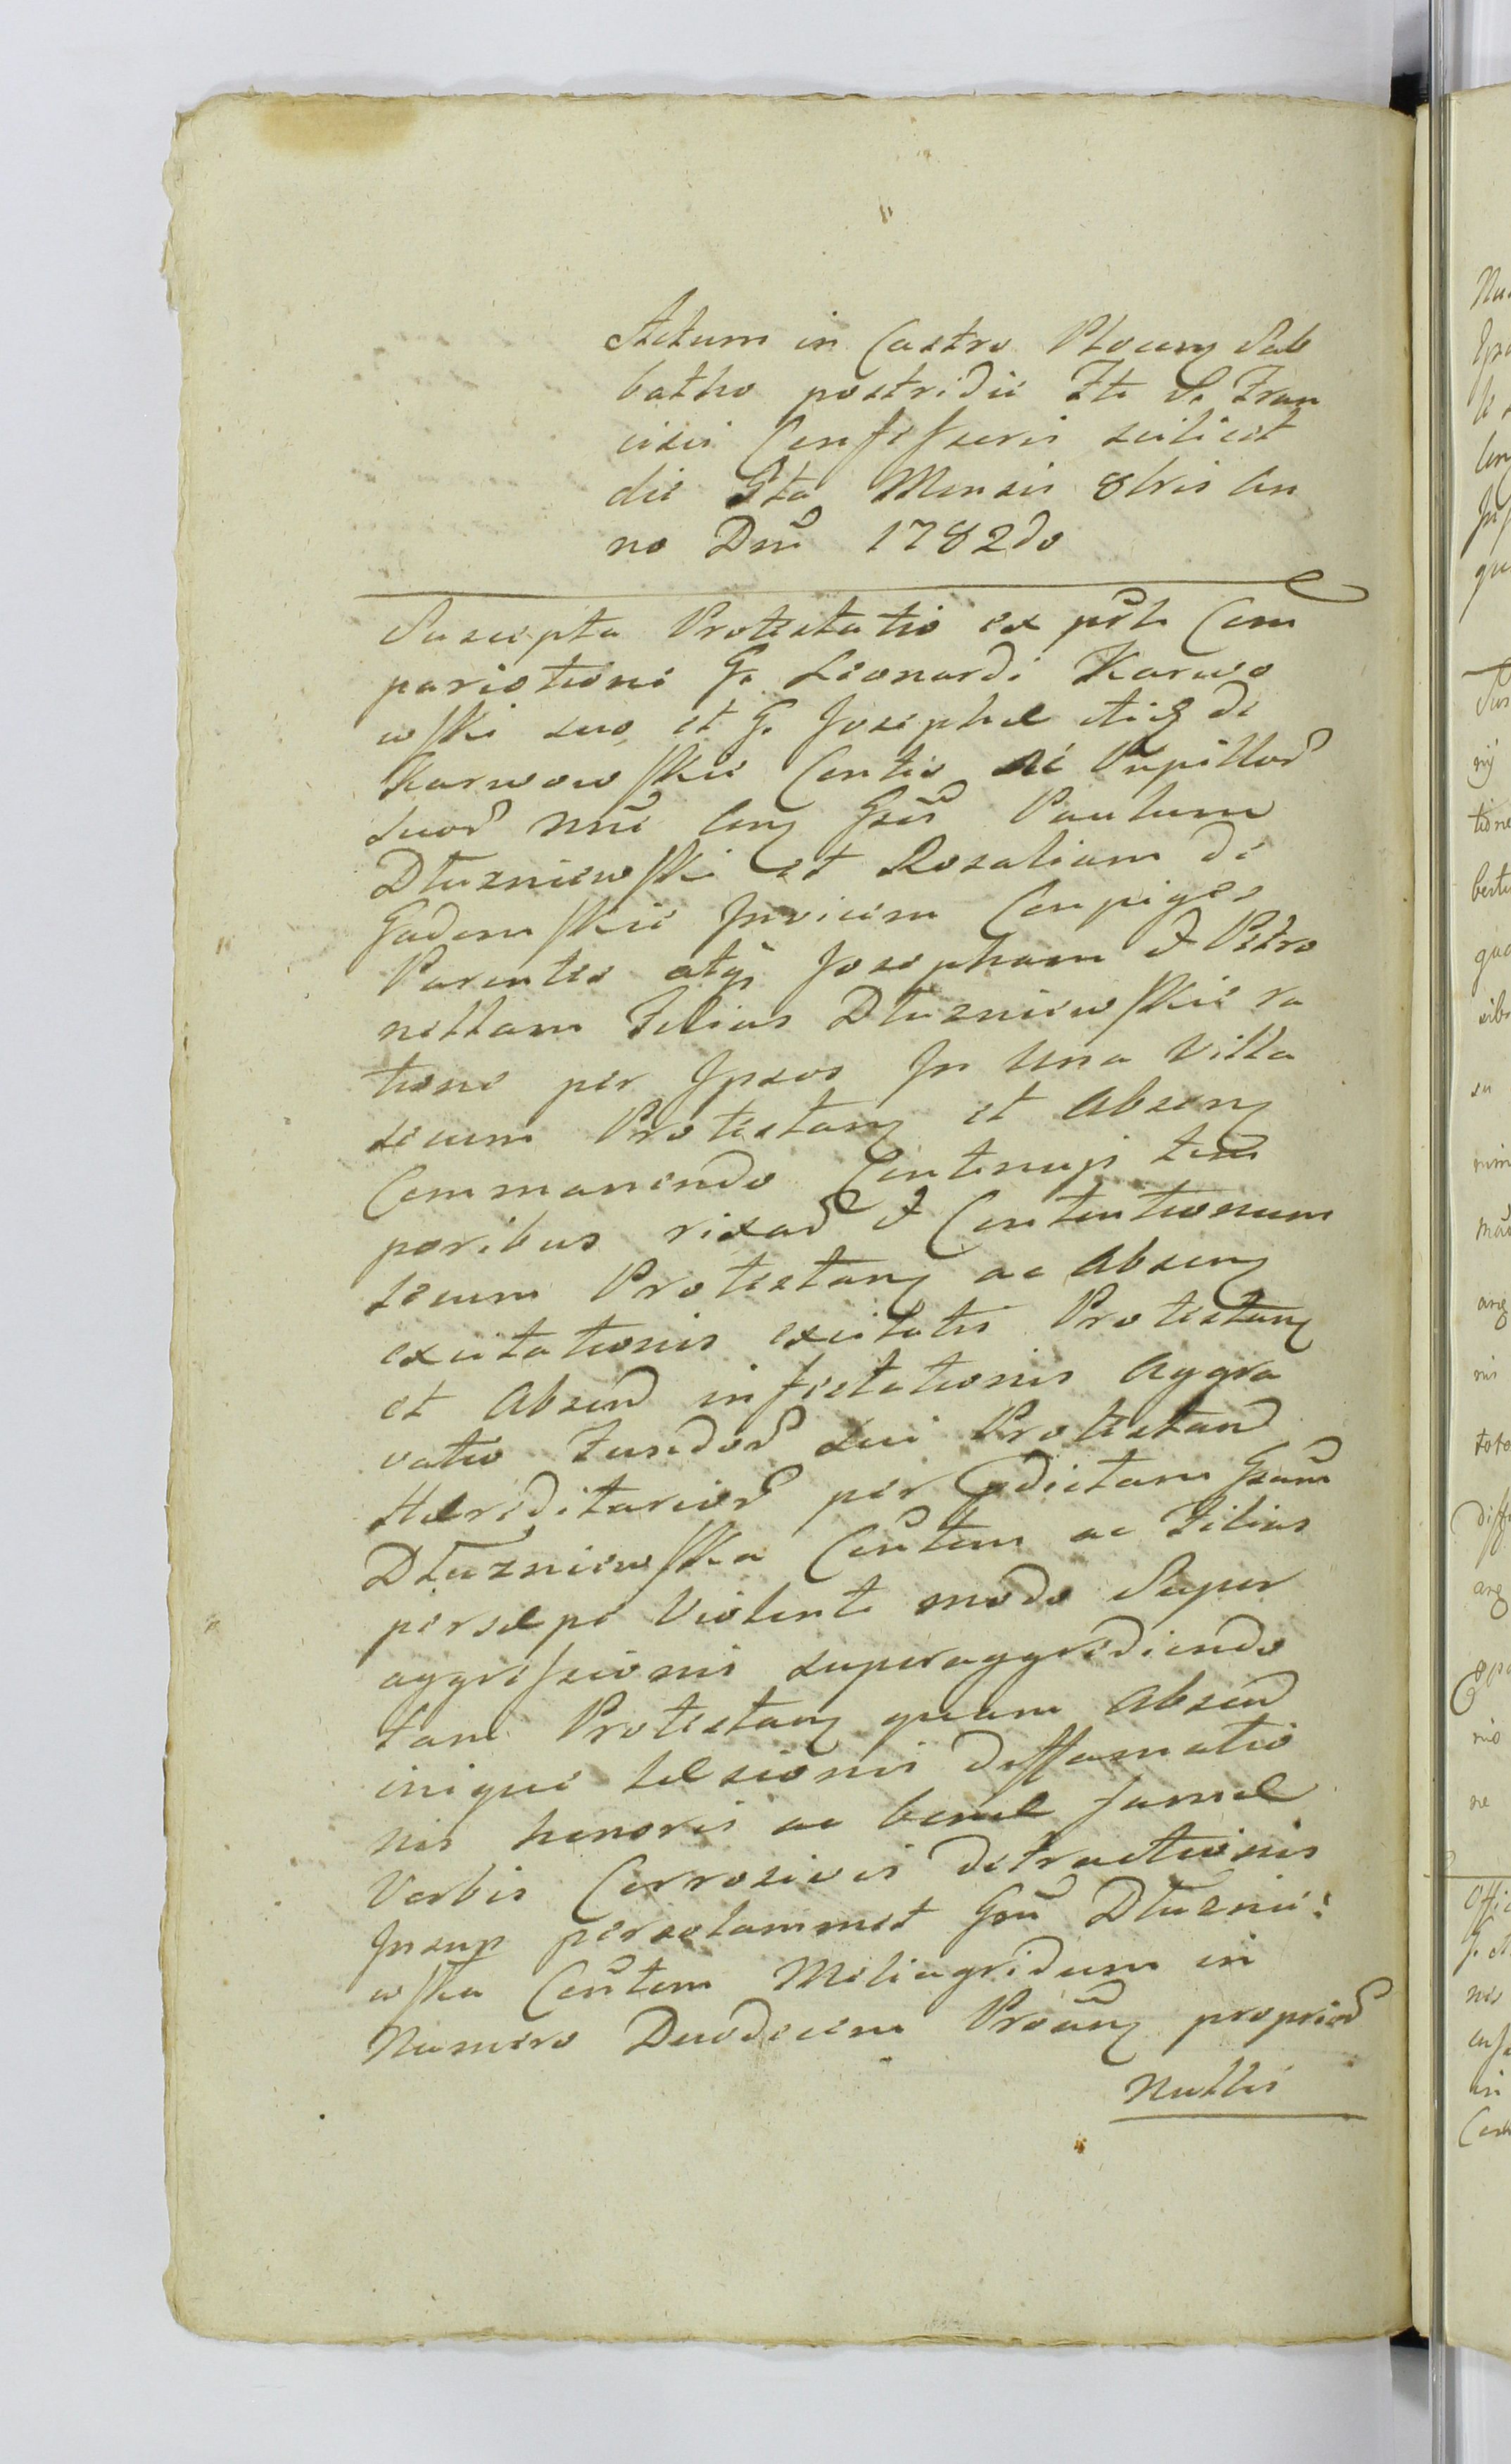 Actum in Castro Plocen Sab
batho postridie Fti S. Fran
cisci Confessoris scilicet
die 5ta Mensis 8bris An
no Dni 1782do
Suscepta Protestatio ex prte Com
pariotione G. Leonardi Karwo
wski suo et G. Josephæ de
Karwowskie Contis ac Pupillor
suor nne Con Gsos Paulum
Dłuzniewski et Rosaliam de
Gadomskie Invicem Conjuges
Parentes atq Josepham & Petro
nellam Filias Dłuzniewskie ra
tione per Ipsos In Una Villa
secum Protestan et Absen
Commanendo Continuis tem
poribus rixar & Contentionum
secum Protestan ac Absen
excitationis excitatis Protestan
et Absen infestationis Aggra
vatio Fundor sui Protestan
Hæreditarior per pdictam Gsam
Dłuzniewska Contem ac Filias
persæpe Violente modo Super
aggressionis superaggrediendo
tam Protestan quam Absen
inique læsionis diffamatio
nis honoris ac bonæ famæ
Verbis Corrosivis detractionis
Insup persolammet Gsu Dłuznie:
wska Contem Meliagridum in
Numero Duodecim Proan proprior
Nullis